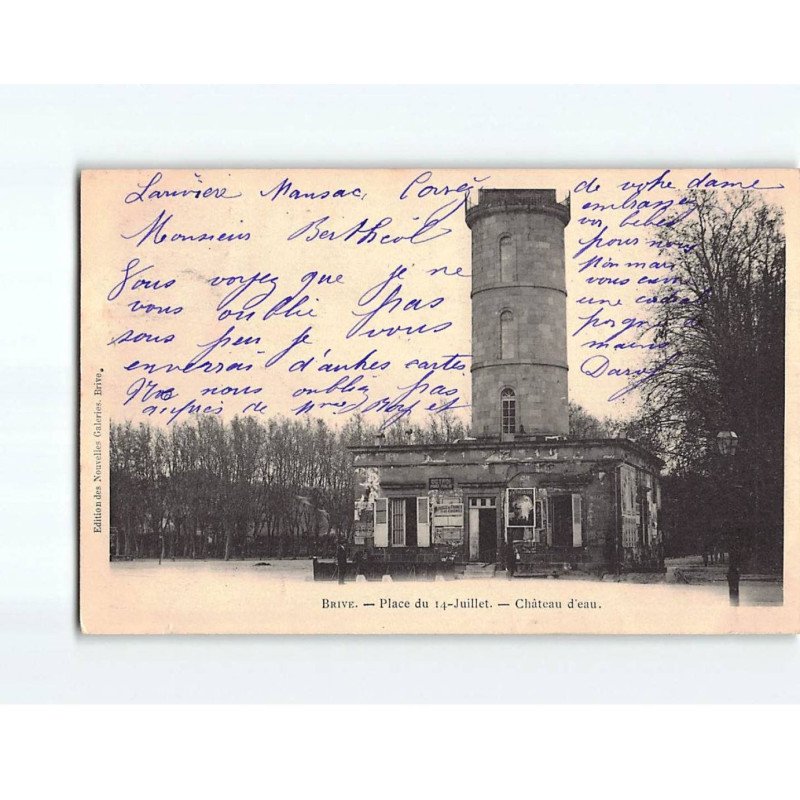 Larivière Mansac, Corrèz
Monsieur Berthéol
Vous voyez que je ne
vous oublié pas
sous peu je vous
enverrai d'autres cartes
Ne nous oublié pas
auprès de Mme Roy et
de votre dame
embrassez
vos bébés
pour nous
Mon mari
vous envoi
une cordial
poignée de
mains
Darvy
Edition des Nouvelles Galeries. Brive.
BRIVE. — Place du 14-Juillet. — Château d'eau.